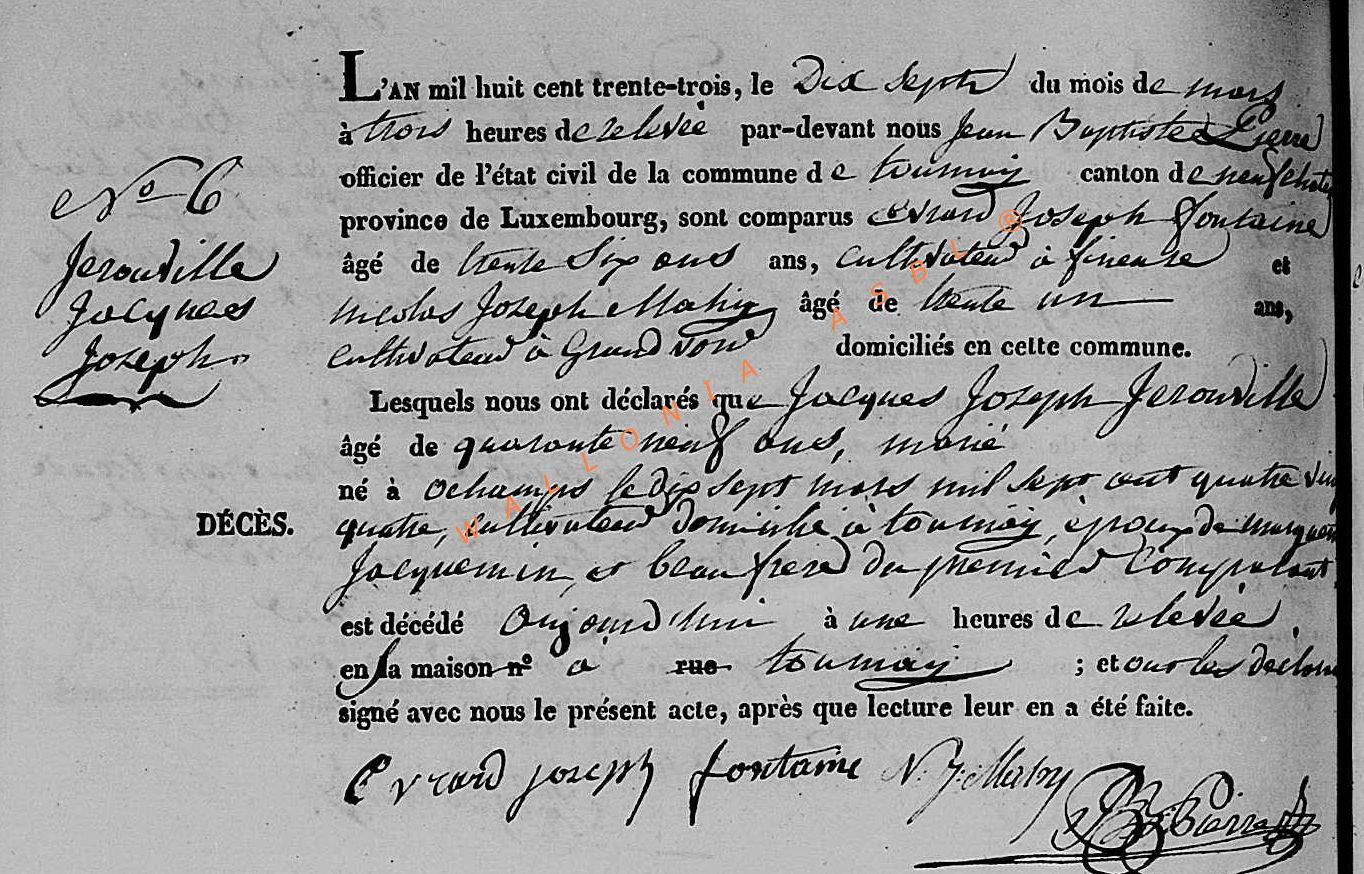 L'AN mil huit cent trente-trois, le Dix Sept du mois de mars
à trois heures de relevée par-devant nous Jean Baptiste Pierre
officier de l'état civil de la commune de tournay canton de neufchate
province de Luxembourg, sont comparus Evrard Joseph fontaine
âgé de trente Six ans ans, cultivateur à fineuse et
nicolas Joseph Mathy âgé de trente un ans,
cultivateur à Grandvoir domiciliés en cette commune.
N° 6
Jerouville
Jacques
Joseph
Lesquels nous ont déclarés que Jacques Joseph Jerouville
âgé de quarante neuf ans, marié
né à ochamps le dix sept mars mil sept cent quatre vin
DÉCÈS.
quatre, cultivateur domicilié à tournay, époux de
Jacquemin, et beau frere du premier Comparant
est décédé aujourd'hui à une heures de relevée
en sa maison n° à rue tournay ; et ont les
signé avec nous le présent acte, après que lecture leur en a été faite.
Evrard joseph fontaine N. J. Mathy
WALLONIA ASBL ®